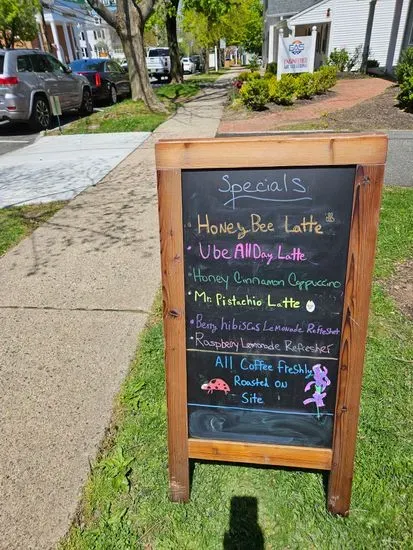 Specials
• Honey Bee Latte
• Ube All Day Latte
• Honey Cinnamon Cappuccino
• Mr. Pistachio Latte
• Berry hibiscus Lemonade Refresher
• Raspberry Lemonade Refresher
All Coffee freshly
Roasted on
Site